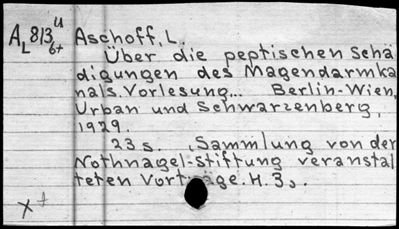 A_L 813 u/6+ Aschoff, L.
Über die peptischen Schä
digungen des Magendarmka
nals. Vorlesung... Berlin-Wien,
Urban und Schwarzenberg,
1929.
23 s. (Sammlung von der
Nothnagel-Stiftung veranstal
teten Vorträge. H. 3).
x+